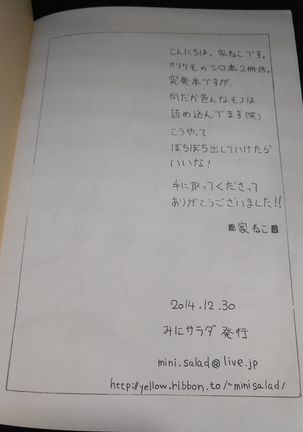 こんにちは、家ねこです。
オリケモのシロ本2冊目。
突発本ですが、
何だか色んなモノは
詰め込んでます(笑)
こうやって
ぼちぼち出していけたら
いいな!
手に取ってくださって
ありがとうございました!!
家ねこ
2014.12.30
みにサラダ 発行
mini_salad@live.jp
http://yellow.ribbon.to/~minisalad/